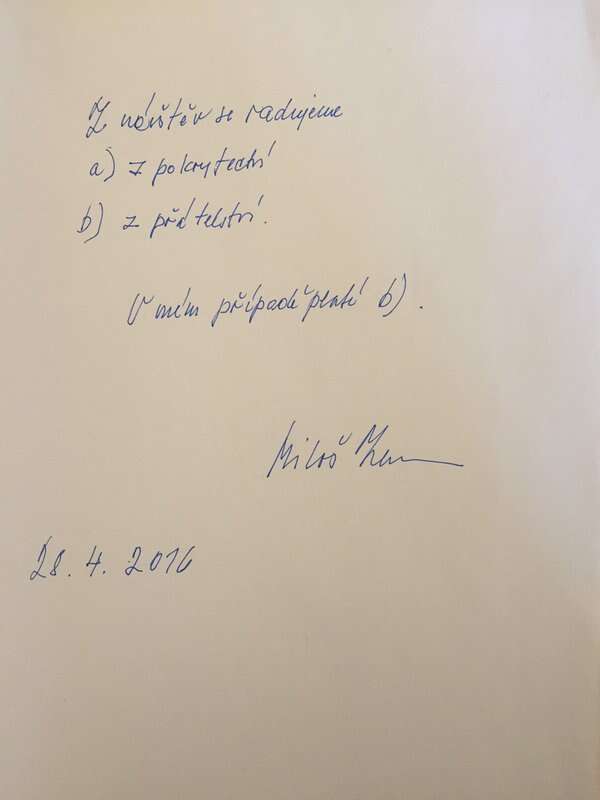 Z návštěv se radujeme
a) z pokrytectví
b) z přátelství.
V mém případě platí b).
Miloš Zeman
28. 4. 2016